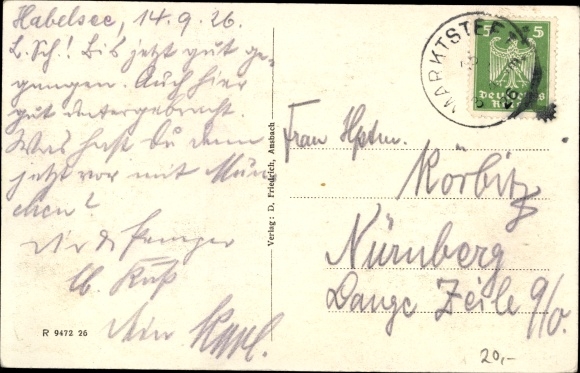 Habelsee, 14.9.26.
L. Sch! Bis jetzt gut ge-
gangen. Auch hier
gut untergebracht
Was hast Du denn
jetzt vor mit Mün-
chen?
lb. Kuß
Dein Karl.
R 9472 26
Verlag: D. Friedrich, Ansbach
MARKTSTEFT
5 5
Deutsches
Reich
Frau Hptm.
Körbitz
Nürnberg
Lange Zeile 9/0.
20,-